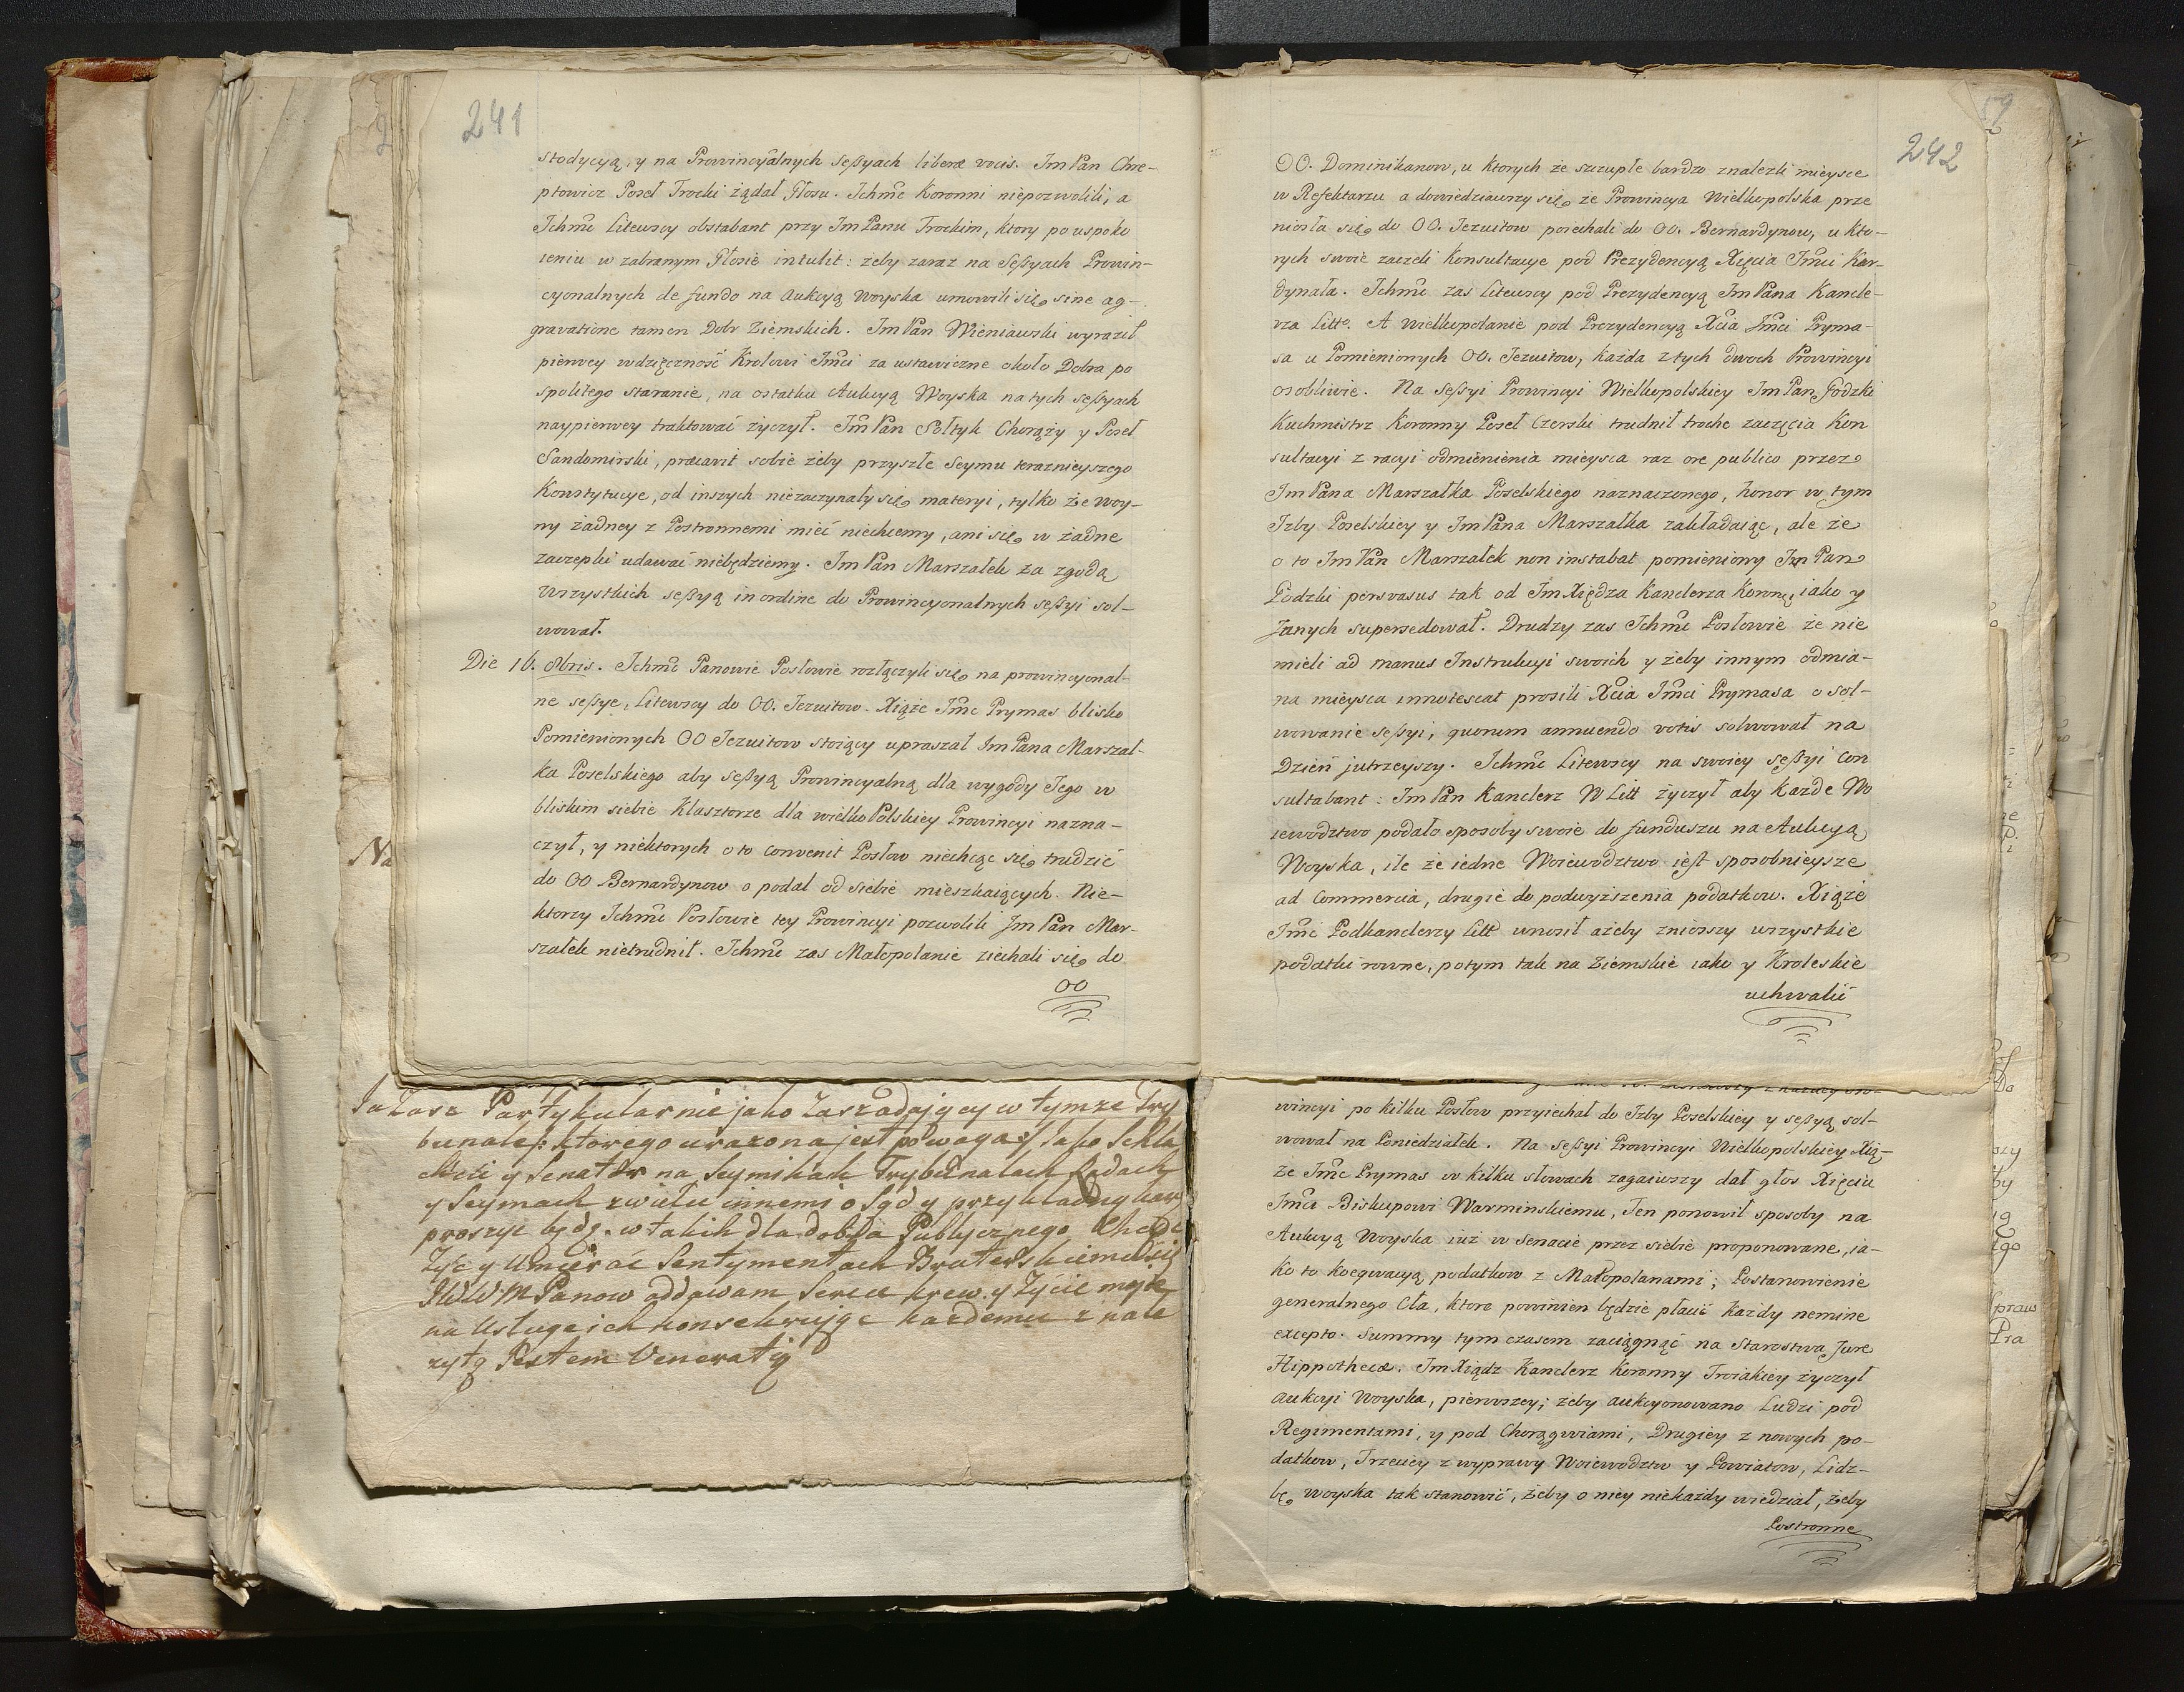 241
stodycyą, y na Prowincyalnych sessyach liberæ vocis. Jm Pan Chre-
ptowicz Poseł Trocki żądał Głosu. Ichmc Koronni niepozwolili, a
Ichmc Litewscy obstabant przy Jm Panu Trockim, ktory po uspoko
ieniu w zabranym Głosie intulit: żeby zaraz na Sessyach Prowin-
cyonalnych de fundo na aukcyą woyska umowili się sine ag-
gravatione tamen Dobr Ziemskich. Jm Pan Wieniawski wyraził
pierwey wdzięczność Krolowi Jmci za ustawiczne około Dobra po
spolitego staranie, na ostatku Aukcyą Woyska na tych sessyach
naypierwey traktować życzył. Jm Pan Sołtyk Chorąży y Poseł
Sandomirski, præcavit sobie żeby przyszłe Seymu teraznieyszego
Konstytucye, od inszych niezaczynały się materyi, tylko że woy-
ny żadney z Postronnemi mieć niechcemy, ani się w żadne
zaczepki udawać niebędziemy. Jm Pan Marszałek za zgodą
wszystkich sessyą in ordine do Prowincyonalnych sessyi sol-
wował.
Die 16. 8bris. Ichmc Panowie Posłowie rozłączyli się na prowincyonal-
ne sessye, Litewscy do OO. Jezuitow. Xiąże Jmc Prymas blisko
Pomienionych OO Jezuitow stoiący upraszał Jm Pana Marszał-
ka Poselskiego aby sessyą Prowincyalną dla wygody Jego w
bliskim siebie Klasztorze dla wielko Polskiey Prowincyi nazna-
czył, y niektorych o to convenit Posłow niechcąc się trudzić
do OO Bernardynow o podal od siebie mieszkaiących. Nie-
ktorzy Ichmc Posłowie tey Prowincyi pozwolili Jm Pan Mar-
szałek nietrudnił. Ichmc zas Małopolanie ziechali się do
OO
Partykularnie jako Zaszadający w tymze Try
bunale: ktorego urazona jest powaga: jako Szla
chcic y Senator na Seymikach Trybunalach Radach
y Seymach z wielu innemi o Sąd y przykładny
proszyć będę. w takich dla dobra Publycznego Chcąc
Zyc y Umierać Sentymentach
JWW M Panow oddawam Serce krew y Zycie moje
na Usługe ich konsekrując kazdemu z nale
zytą Jestem Veneratią
Na
59
242
OO. Dominikanow, u ktorych że szczupłe bardzo znalezli mieysce
w Refektarzu a dowiedziawszy się że Prowincya Wielkopolska prze
niosła się do OO. Jezuitow poiechali do OO. Bernardynow, u kto-
rych swoie zaczeli Konsultacye pod Prezydencyą Xięcia Jmci Kar-
dynała. Ichmc zas Litewscy pod Prezydencyą Jm Pana Kancle-
rza Litt. A wielkopolanie pod Prezydencyą Xcia Jmci Pryma-
sa u Pomienionych OO. Jezuitow, każda z tych dwoch Prowincyi
osobliwie. Na sessyi Prowincyi Wielkopolskiey Jm Pan Podzki
Kuchmistrz Koronny Poseł Czerski trudnił troche zaczęcia Kon
sultacyi z racyi odmienienia mieysca raz ore publico przez
Jm Pana Marszałka Poselskiego naznaczonego, honor w tym
Izby Poselskiey y Jm Pana Marszałka zakładaiąc, ale że
o to Jm Pan Marszałek non instabat pomieniony Jm Pan
Podzki persvasus tak od Jm Xiędza Kanclerza Koronne, iako y
Jnnych supersedował. Drudzy zas Ichmc Posłowie że nie
mieli ad manus Instrukcyi swoich y żeby innym odmia-
na mieysca innotescat prosili Xcia Jmci Prymasa o sol-
wowanie sessyi, quorum annuendo votis solwował na
Dzień jutrzeyszy. Ichmc Litewscy na swoiey sessyi con
sultabant: Jm Pan Kanclerz W Litt życzył aby Każde Wo
iewodztwo podało sposoby swoie do funduszu na Aukcyą
Woyska, ile że iedne Woiewodztwo iest sposobnieysze
ad Commercia, drugie do podwyższenia podatkow. Xiąże
Jmc Podkanclerzy Litt wnosił ażeby zniozszy wszystkie
podatki rowne, potym tak na Ziemskie iako y Krolewskie
uchwalić
wincyi po kilku Posłow przyiechał do Izby Poselskiey y sessyą sol-
wował na Poniedziałek. Na sessyi Prowincyi Wielkopolskiey Xią-
że Jmc Prymas w kilku słowach zagaiwszy dał głos Xięciu
Jmci Biskupowi Warminskiemu, Ten ponowił sposoby na
Aukcyą Woyska iuż w Senacie przez siebie proponowane, ia-
ko to koeqwacyą podatkow z Małopolanami; Postanowienie
generalnego Cła, ktore powinien będzie płacić Każdy nemine
excepto. Summy tym czasem zaciągnąć na Starostwa Jure
Hippothecæ. Jm Xiądz Kanclerz Koronny Troiakiey życzył
aukcyi Woyska, pierwszey; żeby aukcyonowano Ludzi pod
Regimentami, y pod Chorągwiami, Drugiey z nowych po-
datkow, Trzeciey z wyprawy Woiewodztw y Powiatow, Lidz-
bę woyska tak stanowić, żeby o niey niekażdy wiedział, żeby
Postronne